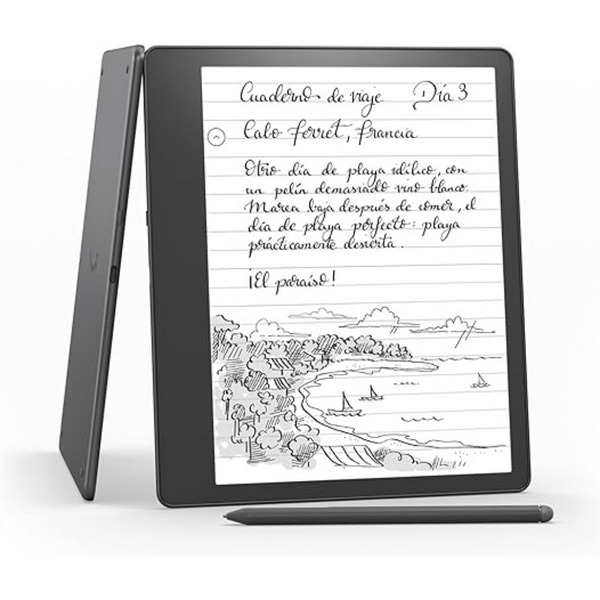 Cuaderno de viaje Día 3
Calo Ferret, Francia
Otro día de playa idílico, con
un pelín demasiado vino blanco.
Marea baja después de comer, el
día de playa perfecto: playa
prácticamente desierta.
¡El paraíso!